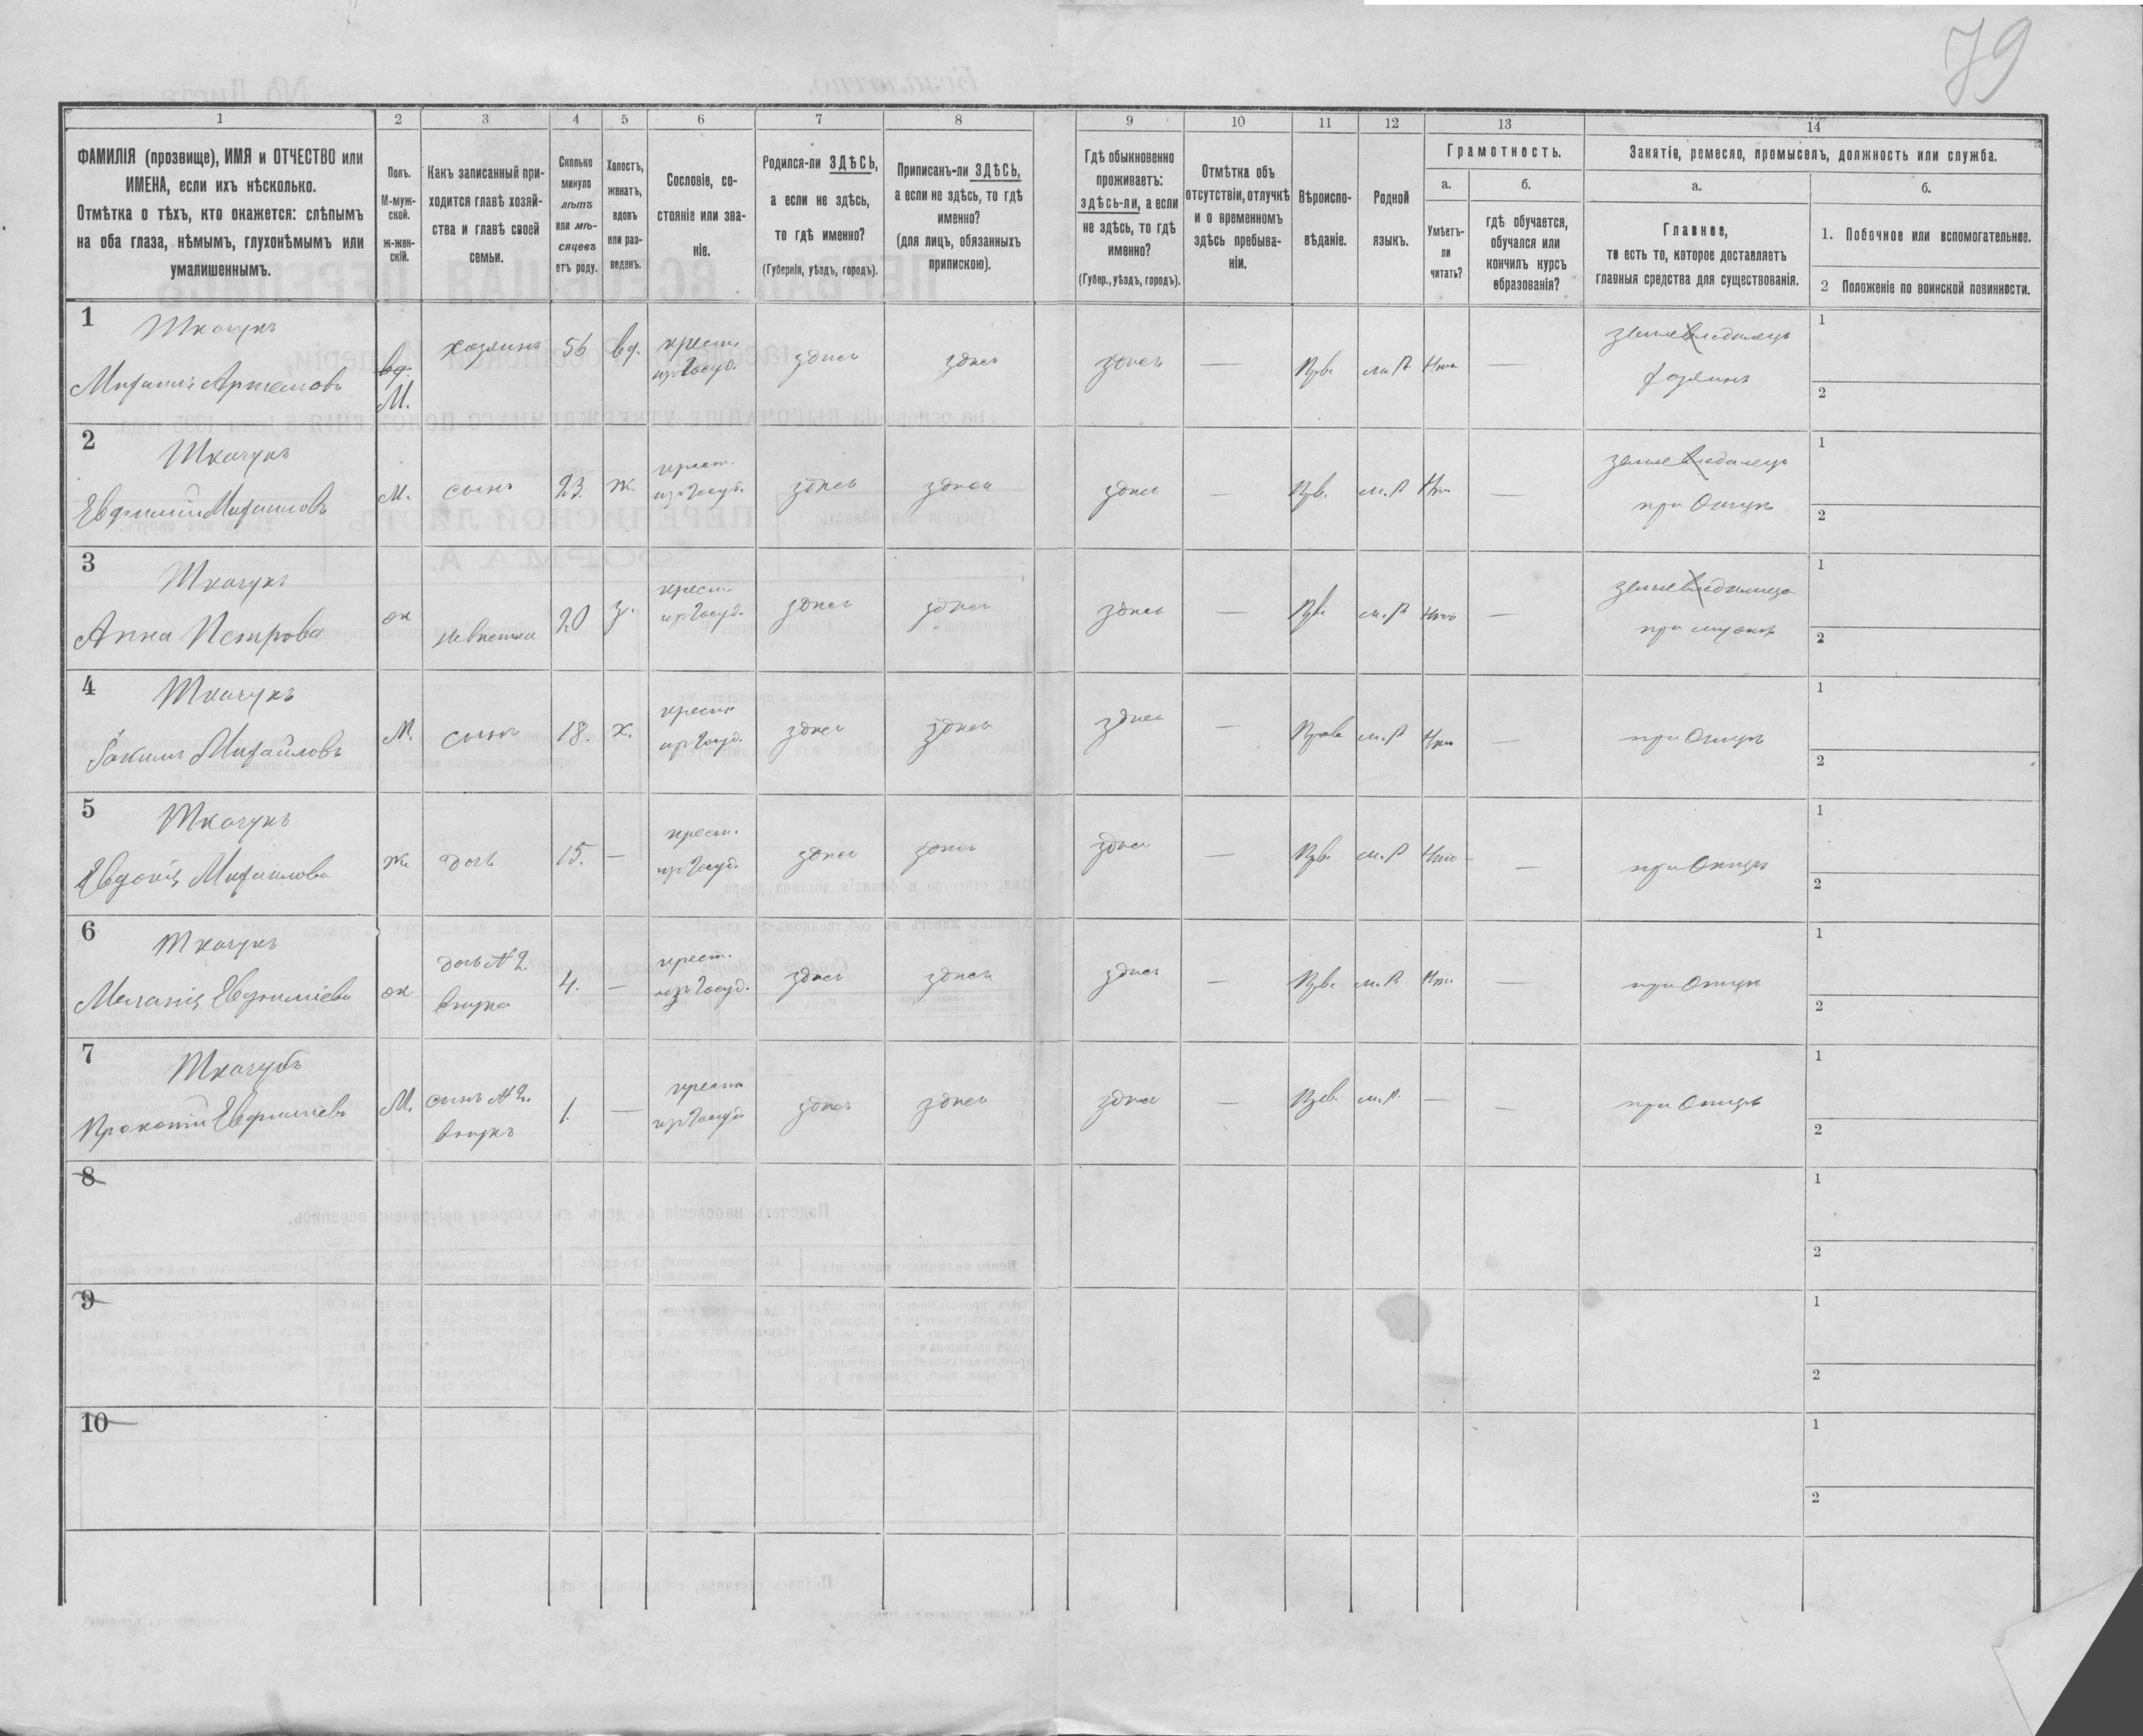 79
1
2
3
4
5
6
7
8
9
10
11
12
13
14
ФАМИЛІЯ (прозвище), ИМЯ и ОТЧЕСТВО или
ИМЕНА, если ихъ нѣсколько.
Отмѣтка о тѣхъ, кто окажется: слѣпымъ
на оба глаза, нѣмымъ, глухонѣмымъ или
умалишеннымъ.
Полъ.
М-муж-
ской.
ж-жен-
скій.
Какъ записанный при-
ходится главѣ хозяй-
ства и главѣ своей
семьи.
Сколько
минуло
лѣтъ
или мѣ-
сяцевъ
отъ роду.
Холостъ,
женатъ,
вдовъ
или раз-
веденъ.
Сословіе, со-
стояніе или зва-
ніе.
Родился-ли ЗДѢСЬ,
а если не здѣсь,
то гдѣ именно?
(Губернія, уѣздъ, городъ).
Приписанъ-ли ЗДѢСЬ,
а если не здѣсь, то гдѣ
именно?
(для лицъ, обязанныхъ
припискою).
Гдѣ обыкновенно
проживаетъ:
здѣсь-ли, а если
не здѣсь, то гдѣ
именно?
(Губер., уѣздъ, городъ).
Отмѣтка объ
отсутствіи, отлучкѣ
и о временномъ
здѣсь пребыва-
ніи.
Вѣроиспо-
вѣданіе.
Родной
языкъ.
Грамотность.
а.
Умѣетъ-
ли
читать?
б.
гдѣ обучается,
обучался или
кончилъ курсъ
образованія?
Занятіе, ремесло, промыселъ, должность или служба.
а.
Главное,
то есть то, которое доставляетъ
главныя средства для существованія.
б.
1. Побочное или вспомогательное.
2 Положеніе по воинской повинности.
1
Ткачукъ
Михаилъ Артемовъ
вд.
М.
хозяинъ
56
вд.
крест.
изъ Госуд.
здесь
здесь
здесь
—
Прв.
м. р
Нетъ
—
землевладелецъ
хозяинъ
1
2
2
Ткачукъ
Евфимій Михаиловъ
М.
сынъ
23.
ж.
крест.
изъ Госуд.
здесь
здесь
здесь
—
Прв.
м. р
Нетъ
—
землевладелецъ
при Отцѣ
1
2
3
Ткачукъ
Анна Петрова
ж
невестка
20
з.
крест.
изъ Госуд.
здесь
здесь
здесь
—
Прв.
м. р
Нетъ
—
землевладелецъ
при мужѣ
1
2
4
Ткачукъ
Іакимъ Михайловъ
М.
сынъ
18.
х.
крест.
изъ Госуд.
здесь
здесь
здесь
—
Прав.
м. р
Нетъ
—
при Отцѣ
1
2
5
Ткачукъ
Евдокія Михаилова
ж.
дочь
15.
—
крест.
изъ Госуд.
здесь
здесь
здесь
—
Прв.
м. р
Нетъ
—
при Отцѣ
1
2
6
Ткачукъ
Меланія Евфиміева
ж
дочь № 2
внука
4.
—
крест.
изъ Госуд.
здесь
здесь
здесь
—
Прв.
м. р
Нетъ
—
при Отцѣ
1
2
7
Ткачукъ
Прокопій Евфиміевъ
М.
сынъ № 2.
внукъ
1.
—
крест.
изъ Госуд.
здесь
здесь
здесь
—
Прв.
м. р.
—
—
при Отцѣ
1
2
8
1
2
9
1
2
10
1
2